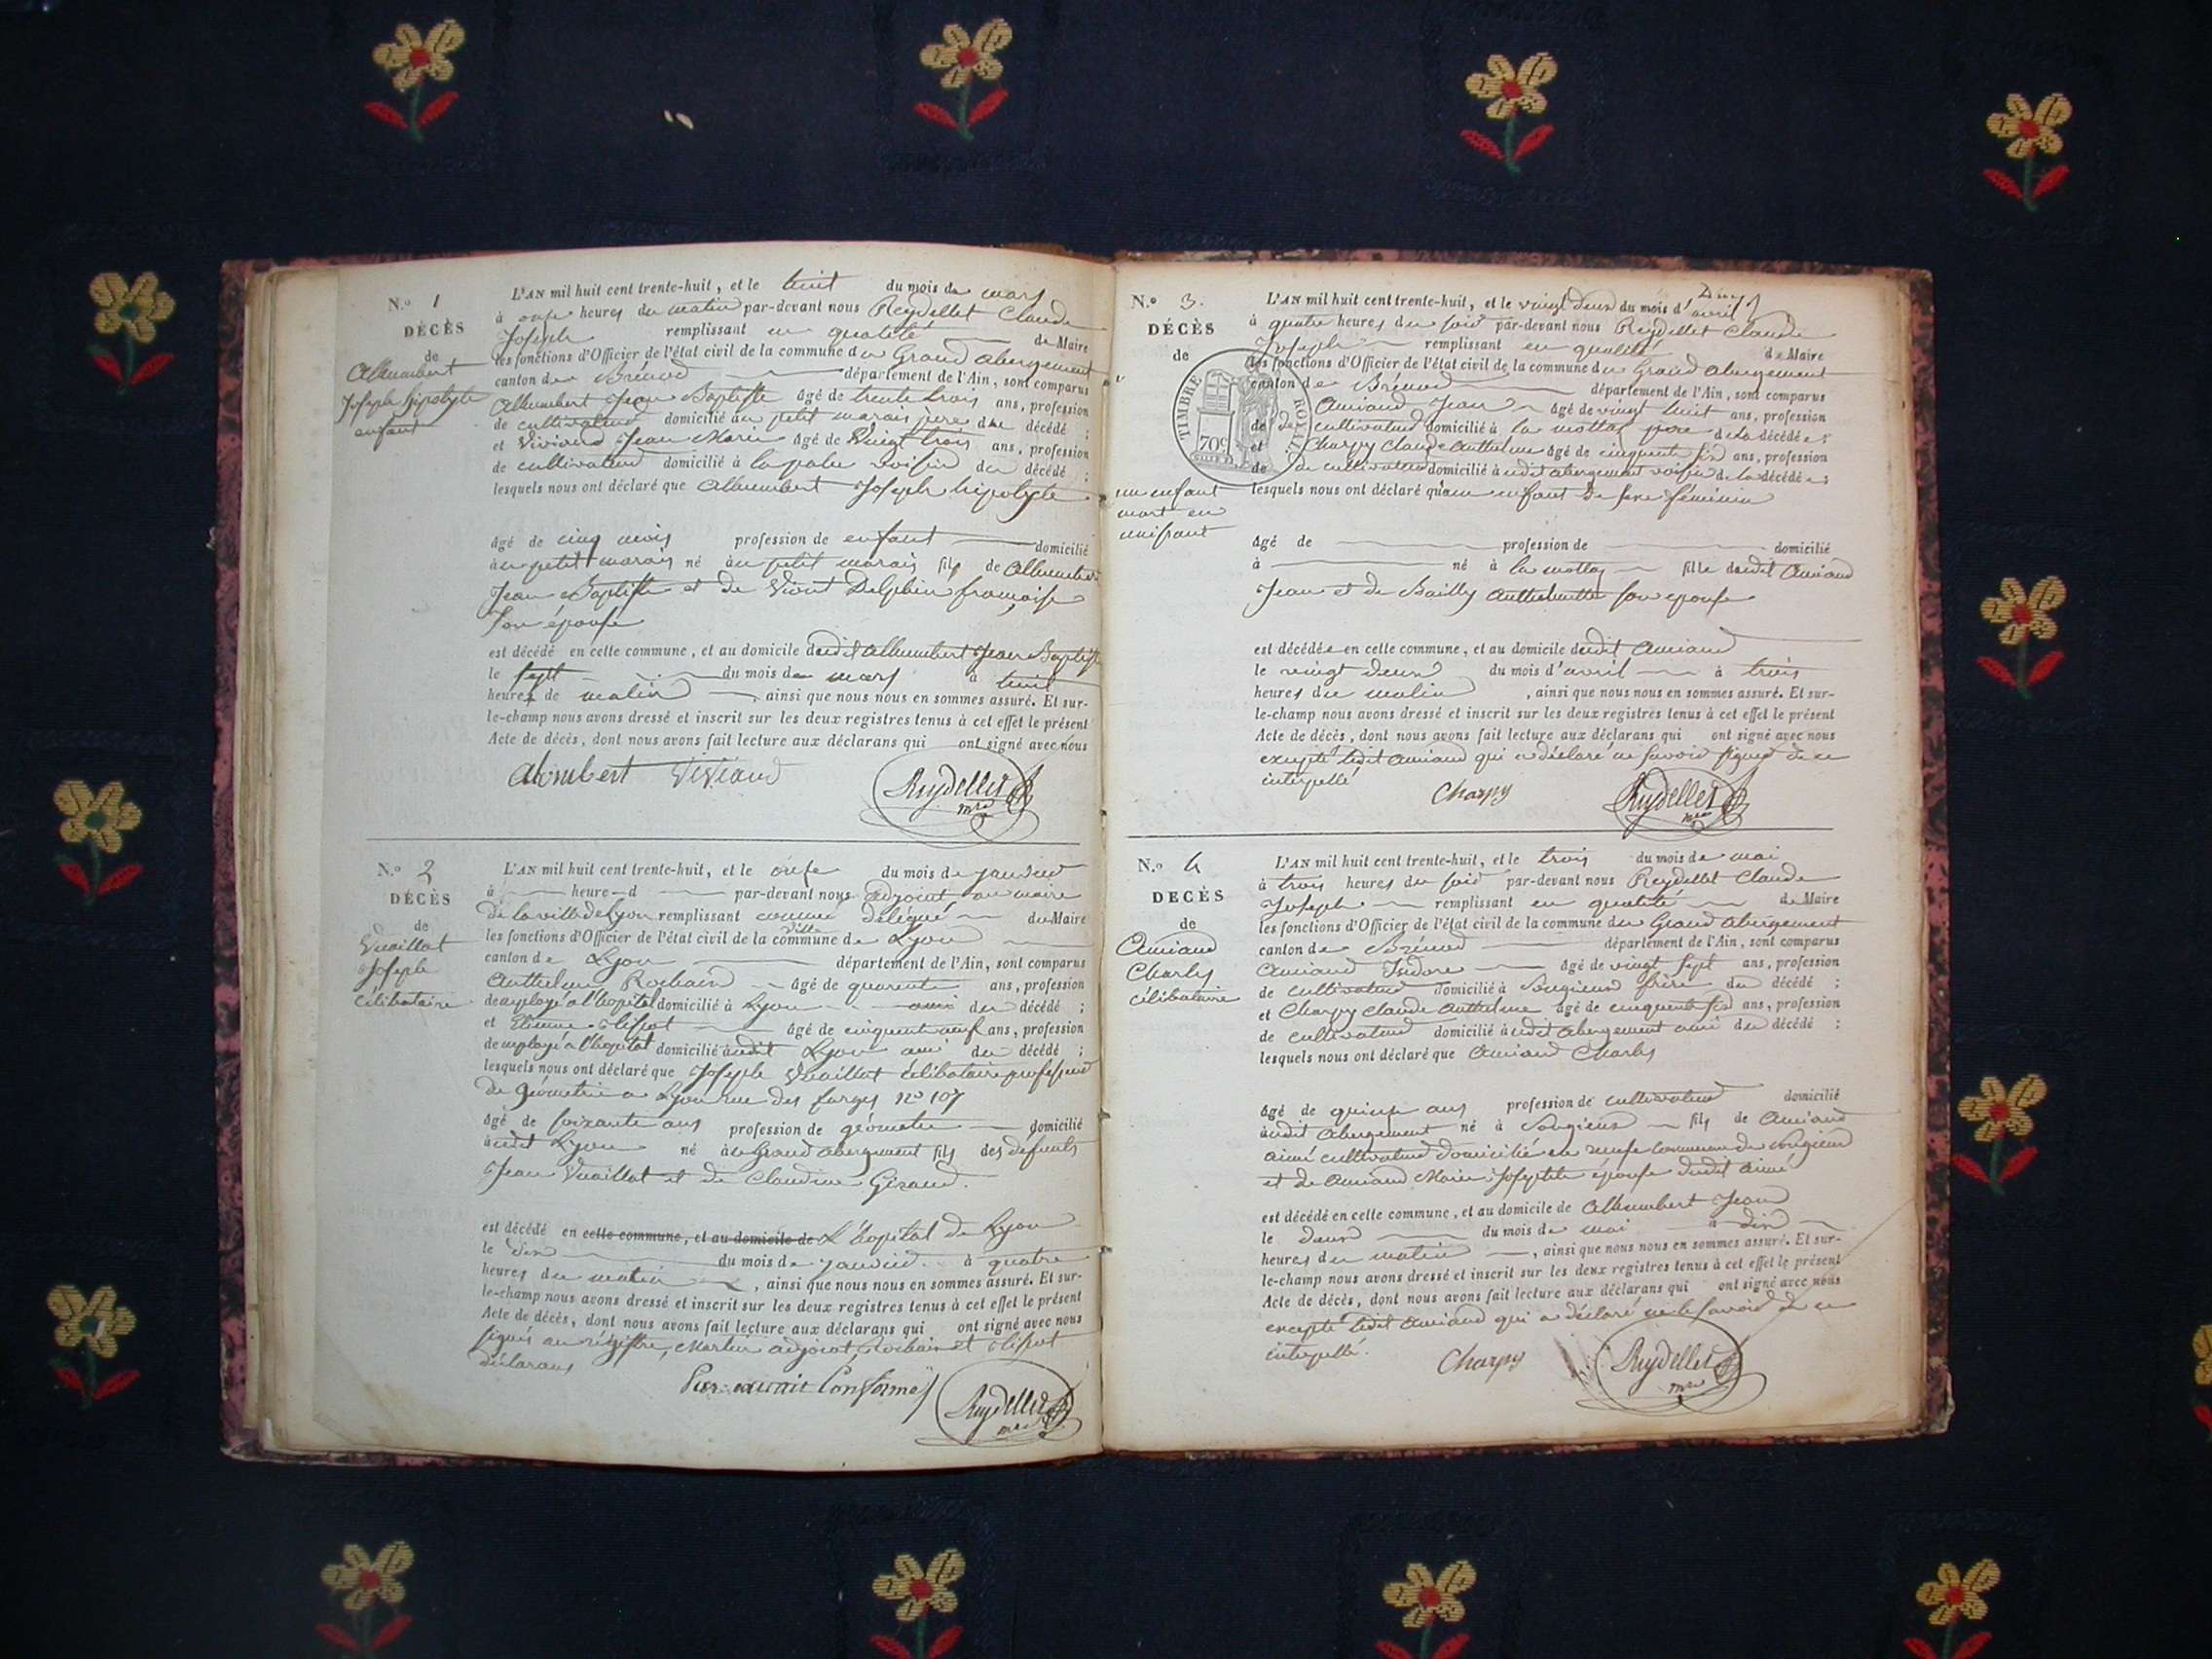 N.º 1
DÉCÈS
de
Allhumbert
Joseph hipolyte
enfant
L'AN mil huit cent trente-huit, et le huit du mois de mars
à onze heures du matin par-devant nous Reydellet Claude
Joseph remplissant en qualité de Maire
les fonctions d'Officier de l'état civil de la commune du Grand abergement
canton de Brénod département de l'Ain, sont comparus
Allhumbert Jean Baptiste âgé de trente trois ans, profession
de cultivateur domicilié au petit marais père du décédé ;
et Viviand Jean Marie âgé de Vingt trois ans, profession
de cultivateur domicilié à la palu voisin du décédé ;
lesquels nous ont déclaré que Allhumbert Joseph hipolyte
âgé de cinq mois profession de enfant domicilié
au petit marais né au petit marais fils de Allhumbert
Jean Baptiste et de Delphin françoise
son épouse
est décédé en cette commune, et au domicile dudit Allhumbert Jean Baptiste
le sept du mois de mars à huit
heures de matin, ainsi que nous nous en sommes assuré. Et sur-
le-champ nous avons dressé et inscrit sur les deux registres tenus à cet effet le présent
Acte de décès, dont nous avons fait lecture aux déclarans qui ont signé avec nous
Alombert Viviand Reydellet
mre
N.º 2
DÉCÈS
de
Vuaillat
Joseph
célibataire
L'AN mil huit cent trente-huit, et le onze du mois de janvier
à heure d par-devant nous adjoint au maire
de la ville de Lyon remplissant comme délégué du Maire
les fonctions d'Officier de l'état civil de la commune ville de Lyon
canton de Lyon département de l'Ain, sont comparus
Anthelme Rochain âgé de quarente ans, profession
de employé a l'hopital domicilié à Lyon ami du décédé ;
et Etienne âgé de cinquante neuf ans, profession
de employé a l'hopital domicilié audit Lyon ami du décédé ;
lesquels nous ont déclaré que Joseph Vuaillat célibataire professeur
de géometrie a Lyon rue des farges nº 107
âgé de soixante ans profession de géometre domicilié
audit Lyon né au Grand abergement fils des defunts
Jean Vuaillat et de Claudine Giraud.
est décédé en cette commune, et au domicile de L'hopital de Lyon
le dix du mois de janvier à quatre
heures du matin, ainsi que nous nous en sommes assuré. Et sur-
le-champ nous avons dressé et inscrit sur les deux registres tenus à cet effet le présent
Acte de décès, dont nous avons fait lecture aux déclarans qui ont signé avec nous
signés au régistre, Martin adjoint, Rochain et
déclarans
Pour Conforme Reydellet
mre
N.º 3.
DÉCÈS
de
un enfant
mort en
naissant
TIMBRE ROYAL
70c
L'AN mil huit cent trente-huit, et le vingt deux du mois d'avril
à quatre heures du soir par-devant nous Reydellet Claude
Joseph remplissant en qualité de Maire
les fonctions d'Officier de l'état civil de la commune du Grand abergement
canton de Brénod département de l'Ain, sont comparus
Amiand Jean âgé de vingt huit ans, profession
de cultivateur domicilié à la mottaz père de la décédée ;
et Charpy Claude Anthelme âgé de cinquante six ans, profession
de cultivateur domicilié à udit abergement voisin de la décédée ;
lesquels nous ont déclaré qu'un enfant de sexe féminin
âgé de profession de domicilié
à né à la mottaz fille dudit Amiand
Jean et de Bailly Anthelmette son épouse
est décédée en cette commune, et au domicile dudit Amiand
le vingt deux du mois d'avril à trois
heures du matin, ainsi que nous nous en sommes assuré. Et sur-
le-champ nous avons dressé et inscrit sur les deux registres tenus à cet effet le présent
Acte de décès, dont nous avons fait lecture aux déclarans qui ont signé avec nous
excepté ledit Amiand qui a déclaré ne savoir signer de ce
interpellé
Charpy Reydellet
mre
N.º 4
DÉCÈS
de
Amiand
Charles
célibataire
L'AN mil huit cent trente-huit, et le trois du mois de mai
à trois heures du soir par-devant nous Reydellet Claude
Joseph remplissant en qualité de Maire
les fonctions d'Officier de l'état civil de la commune du Grand abergement
canton de Brénod département de l'Ain, sont comparus
Amiand Isidore âgé de vingt sept ans, profession
de cultivateur domicilié à Songieux frère du décédé ;
et Charpy Claude Anthelme âgé de cinquante six ans, profession
de cultivateur domicilié à udit abergement ami du décédé ;
lesquels nous ont déclaré que Amiand Charles
âgé de quinze ans profession de cultivateur domicilié
audit abergement né à Songieux fils de Amiand
aimé cultivateur domicilié commune de Songieux
et de Amiand Marie Josephte épouse dudit aimé
est décédé en cette commune, et au domicile de Allhumbert Jean
le deux du mois de mai à dix
heures du matin, ainsi que nous nous en sommes assuré. Et sur-
le-champ nous avons dressé et inscrit sur les deux registres tenus à cet effet le présent
Acte de décès, dont nous avons fait lecture aux déclarans qui ont signé avec nous
excepté ledit Amiand qui a déclaré ne le savoir de ce
interpellé.
Charpy Reydellet
mre